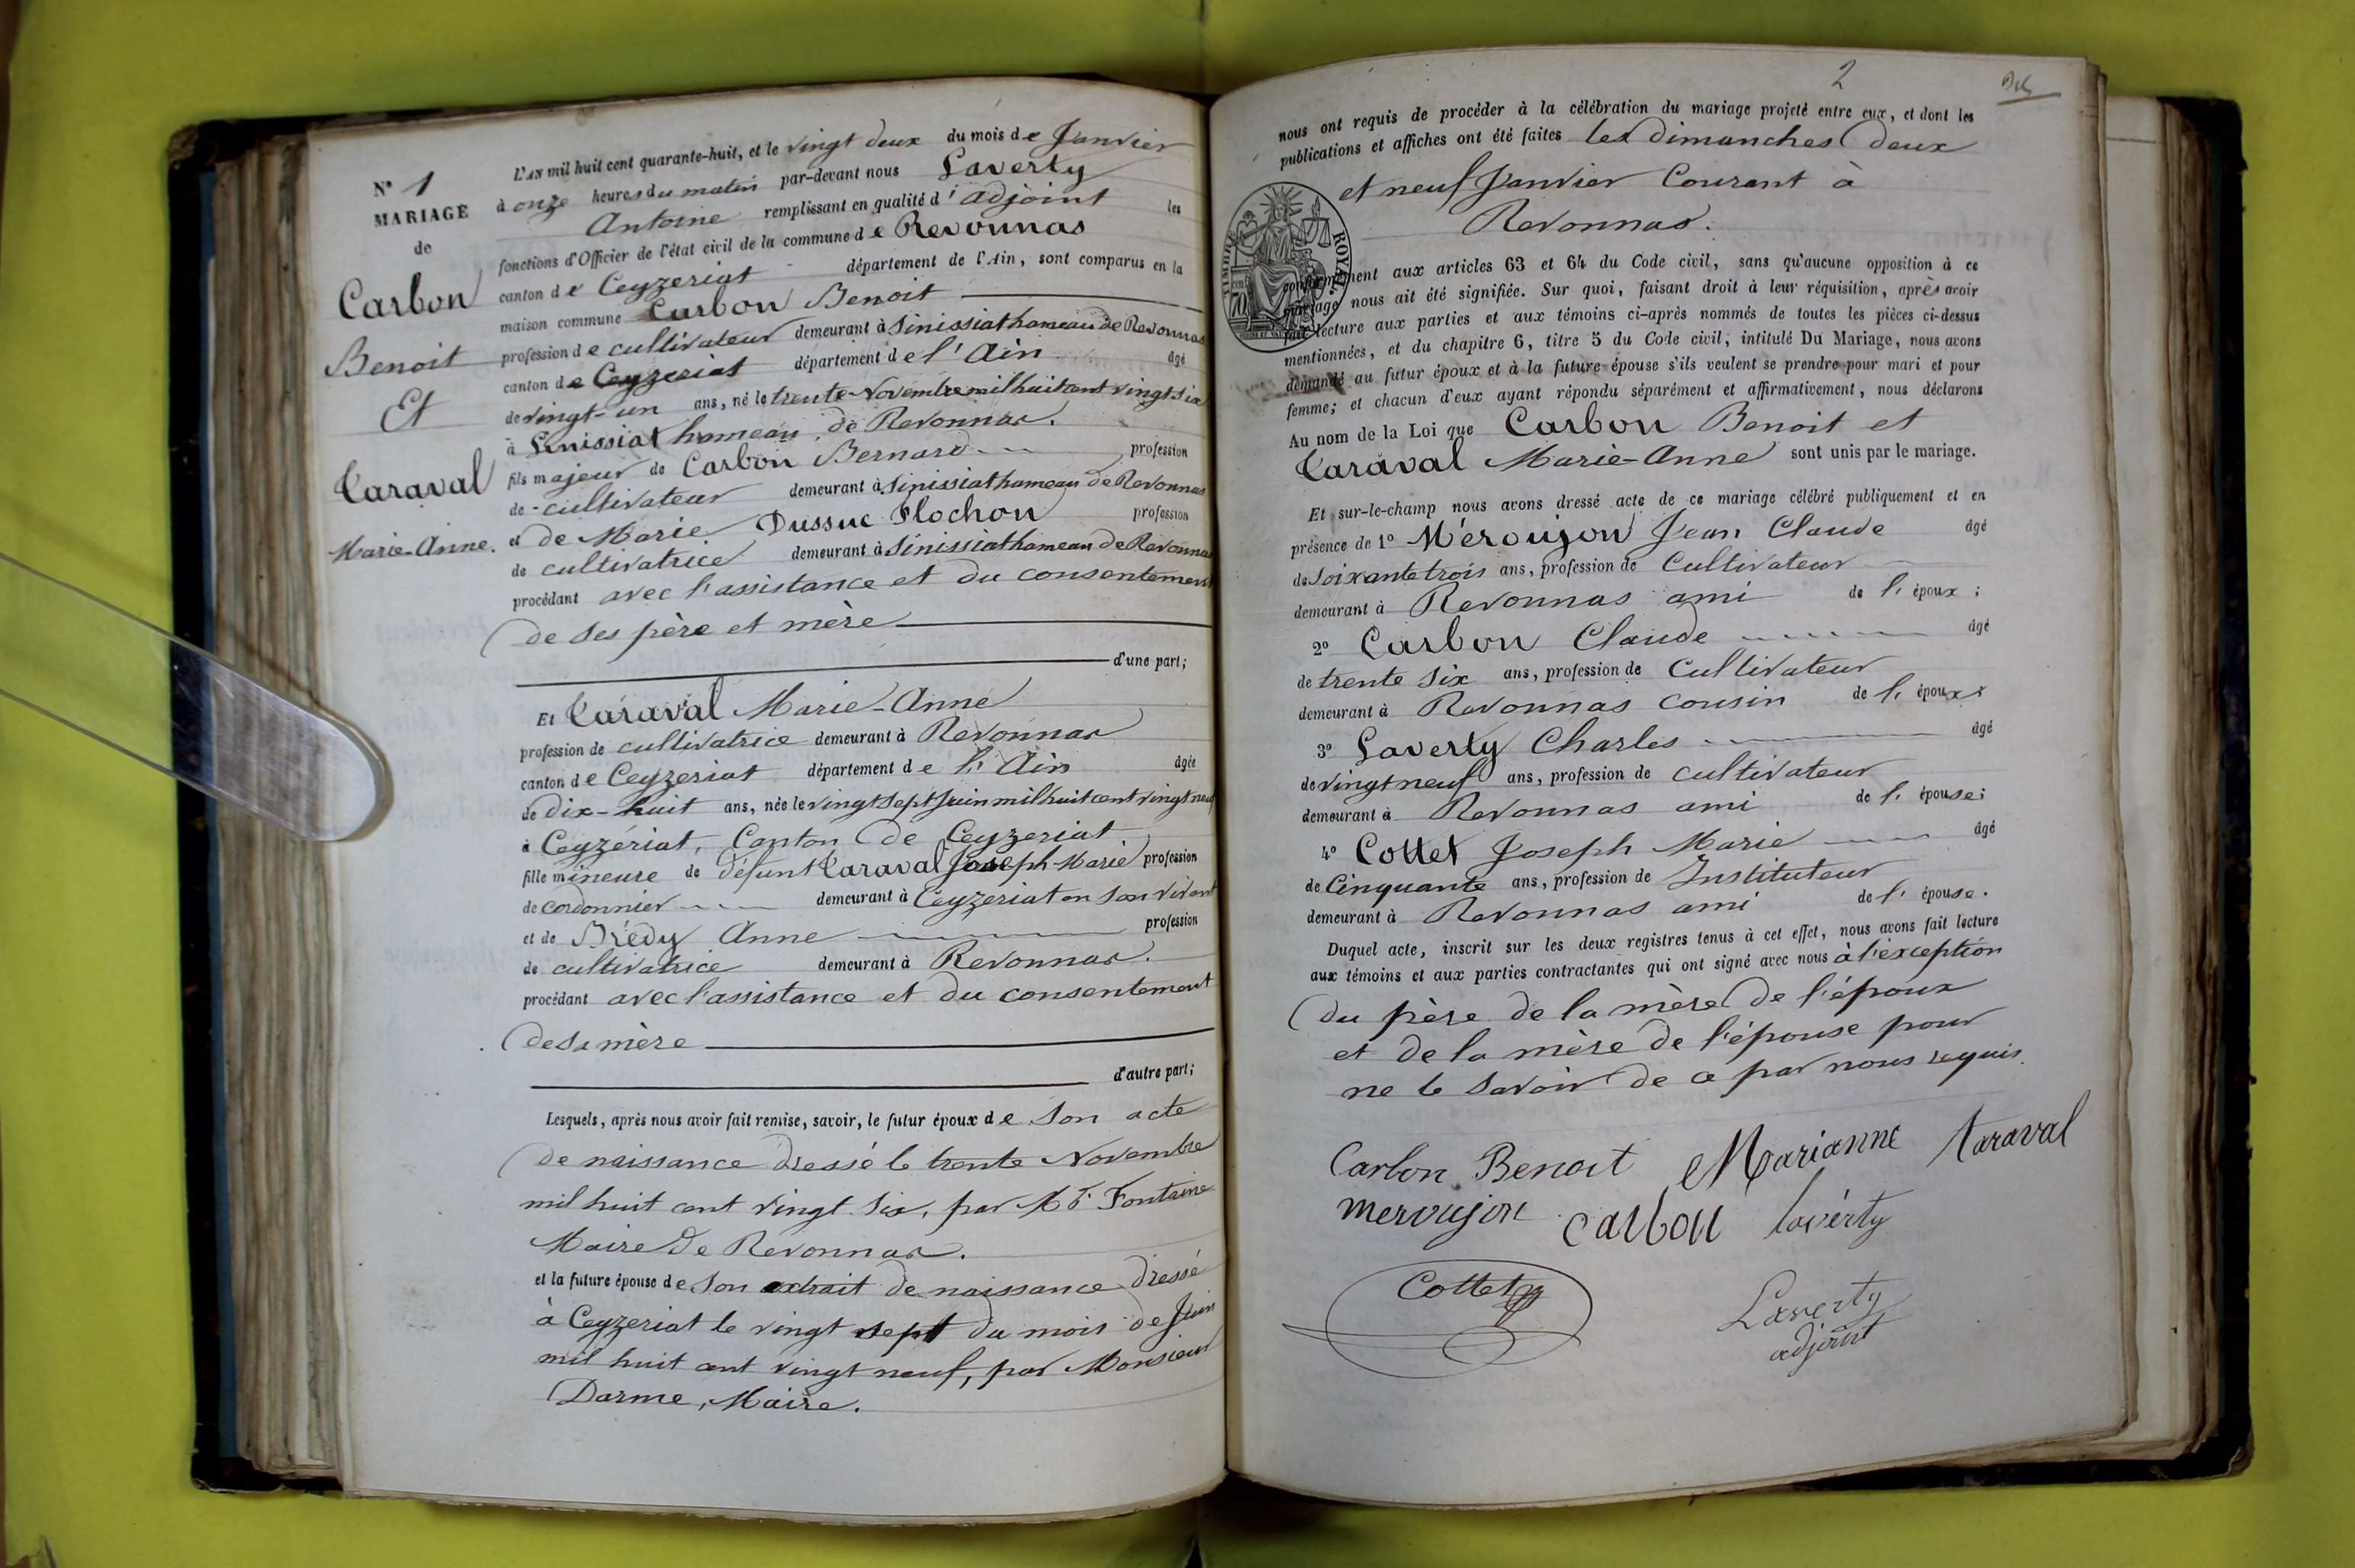 N° 1
MARIAGE
de
Carbon
Benoit
Et
Taraval
Marie-Anne.
L'AN mil huit cent quarante-huit, et le vingt deux du mois de Janvier
à onze heures du matin par-devant nous Laverty
Antoine remplissant en qualité d'adjoint les
fonctions d'Officier de l'état civil de la commune de Revonnas
canton de Ceyzeriat département de l'Ain, sont comparus en la
maison commune Carbon Benoit
profession de cultivateur demeurant à Sinissiat hameau de Revonnas
canton de Ceyzeriat département de l'Ain âgé
de vingt-un ans, né le trente Novembre mil huit cent vingt six
à Sinissiat hameau de Revonnas.
fils majeur de Carbon Bernard profession
de cultivateur demeurant à Sinissiat hameau de Revonnas
et de Marie Dussuc Flochon profession
de cultivatrice demeurant à Sinissiat hameau de Revonnas
procédant avec l'assistance et du consentement
de ses père et mère
d'une part;
Et Taraval Marie-Anne
profession de cultivatrice demeurant à Revonnas
canton de Ceyzeriat département de l'Ain âgée
de dix-huit ans, née le vingt sept Juin mil huit cent vingt neuf
à Ceyzériat, Canton de Ceyzeriat
fille mineure de défunt Taraval Joseph Marie profession
de cordonnier demeurant à Ceyzeriat en son vivant
et de Brédy Anne profession
de cultivatrice demeurant à Revonnas.
procédant avec l'assistance et du consentement
de sa mère
d'autre part;
Lesquels, après nous avoir fait remise, savoir, le futur époux de son acte
de naissance dressé le trente Novembre
mil huit cent vingt six, par Mr Fontaine
Maire de Revonnas.
et la future épouse de son extrait de naissance dressé
à Ceyzeriat le vingt sept du mois de Juin
mil huit cent vingt neuf, par Monsieur
Darme, Maire.
2
nous ont requis de procéder à la célébration du mariage projeté entre eux, et dont les
publications et affiches ont été faites les dimanches deux
et neuf Janvier Courant à
Revonnas.
TIMBRE ROYAL
70
conformément aux articles 63 et 64 du Code civil, sans qu'aucune opposition à ce
mariage nous ait été signifiée. Sur quoi, faisant droit à leur réquisition, après avoir
fait lecture aux parties et aux témoins ci-après nommés de toutes les pièces ci-dessus
mentionnées, et du chapitre 6, titre 5 du Code civil, intitulé Du Mariage, nous avons
demandé au futur époux et à la future épouse s'ils veulent se prendre pour mari et pour
femme; et chacun d'eux ayant répondu séparément et affirmativement, nous déclarons
Au nom de la Loi que Carbon Benoit et
Taraval Marie-Anne sont unis par le mariage.
Et sur-le-champ nous avons dressé acte de ce mariage célébré publiquement et en
présence de 1° Méroujon Jean Claude âgé
de soixante trois ans, profession de Cultivateur
demeurant à Revonnas ami de l'époux;
2° Carbon Claude âgé
de trente six ans, profession de Cultivateur
demeurant à Revonnas cousin de l'époux;
3° Laverty Charles âgé
de vingt neuf ans, profession de cultivateur
demeurant à Revonnas ami de l'épouse;
4° Cottet Joseph Marie âgé
de Cinquante ans, profession de Instituteur
demeurant à Revonnas ami de l'épouse.
Duquel acte, inscrit sur les deux registres tenus à cet effet, nous avons fait lecture
aux témoins et aux parties contractantes qui ont signé avec nous à l'exception
du père de la mère de l'époux
et de la mère de l'épouse pour
ne le savoir de ce par nous requis.
Carbon Benoit Marianne Taraval
meroujon carbon lavérty
Cottet
Laverty
adjoint